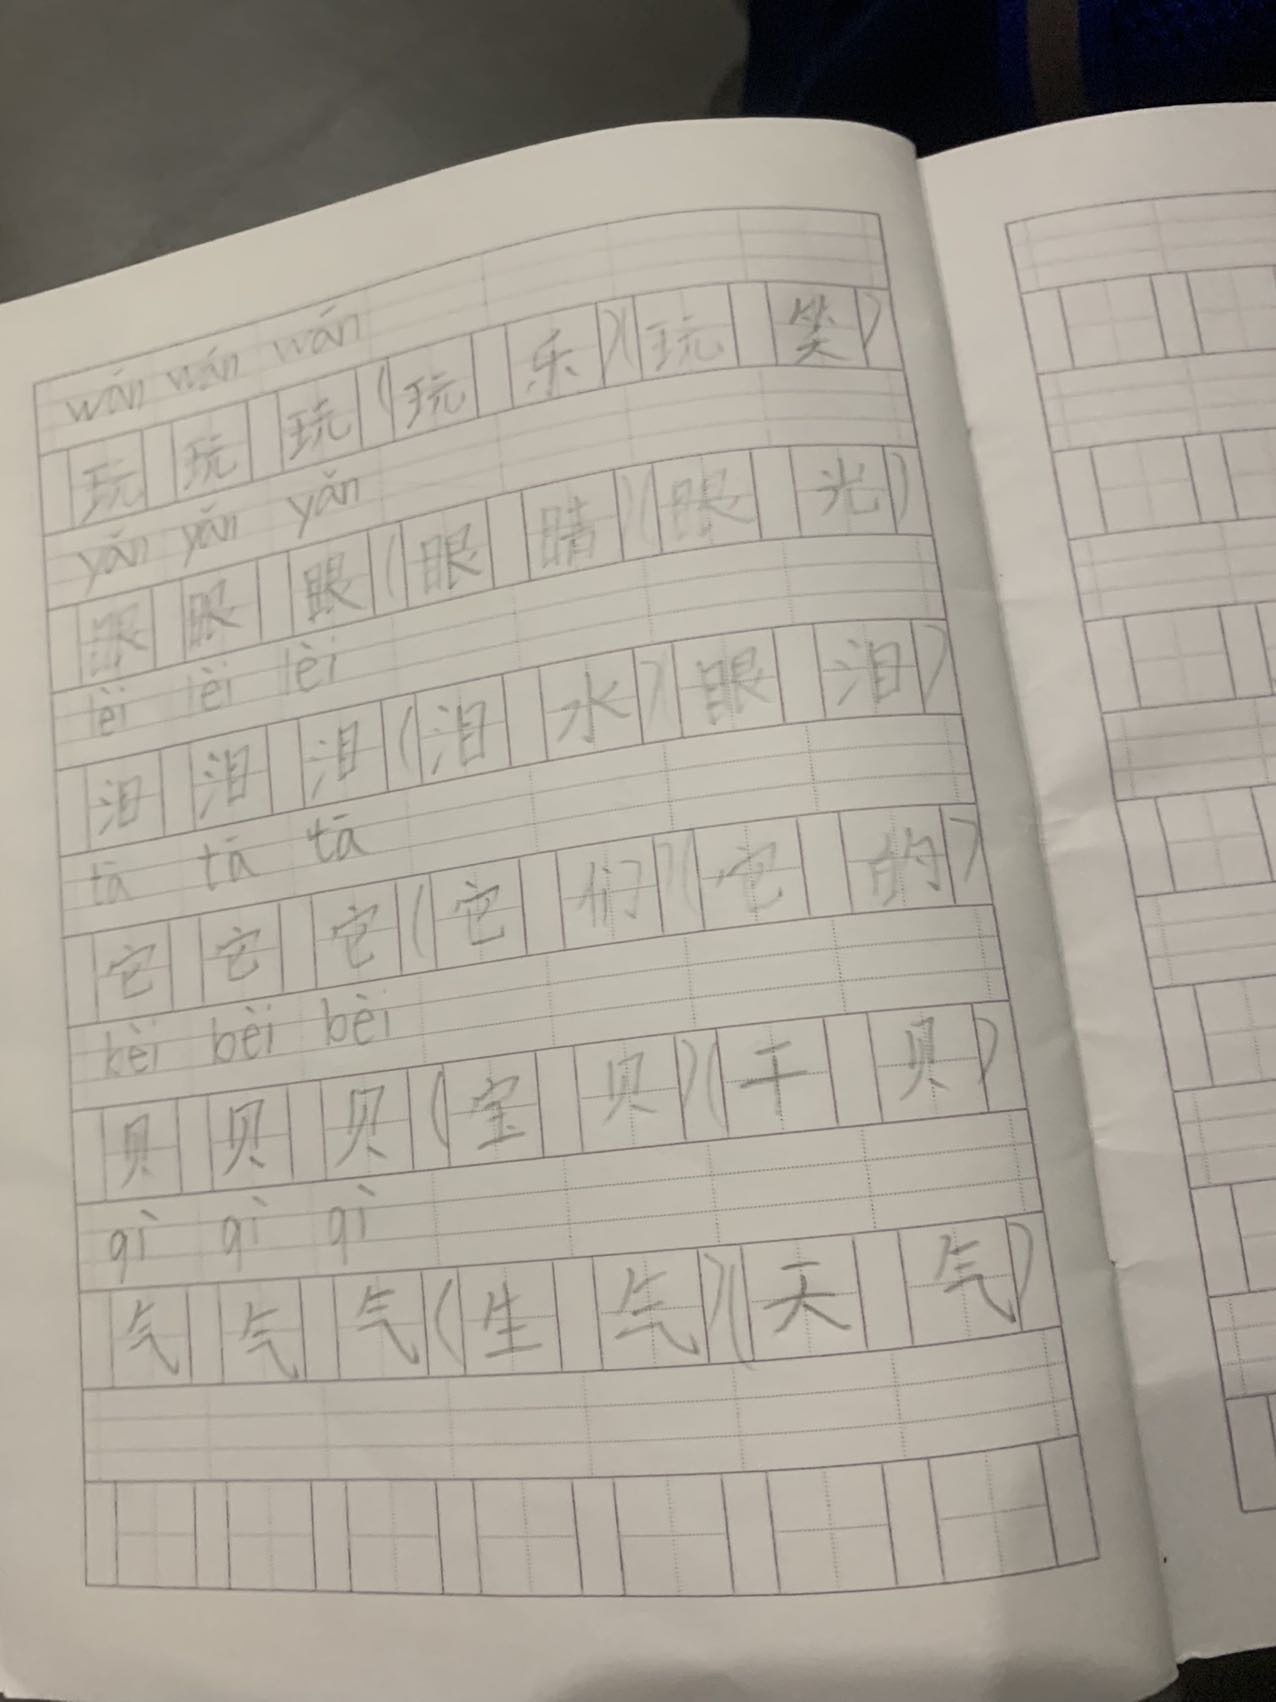 wán wán wán
玩 玩 玩 (玩 乐)(玩 笑)
yǎn yǎn yǎn
眼 眼 眼 (眼 睛)(眼 光)
lèi lèi lèi
泪 泪 泪 (泪 水)(眼 泪)
tā tā tā
它 它 它 (它 们)(它 的)
bèi bèi bèi
贝 贝 贝 (宝 贝)(干 贝)
qì qì qì
气 气 气 (生 气)(天 气)